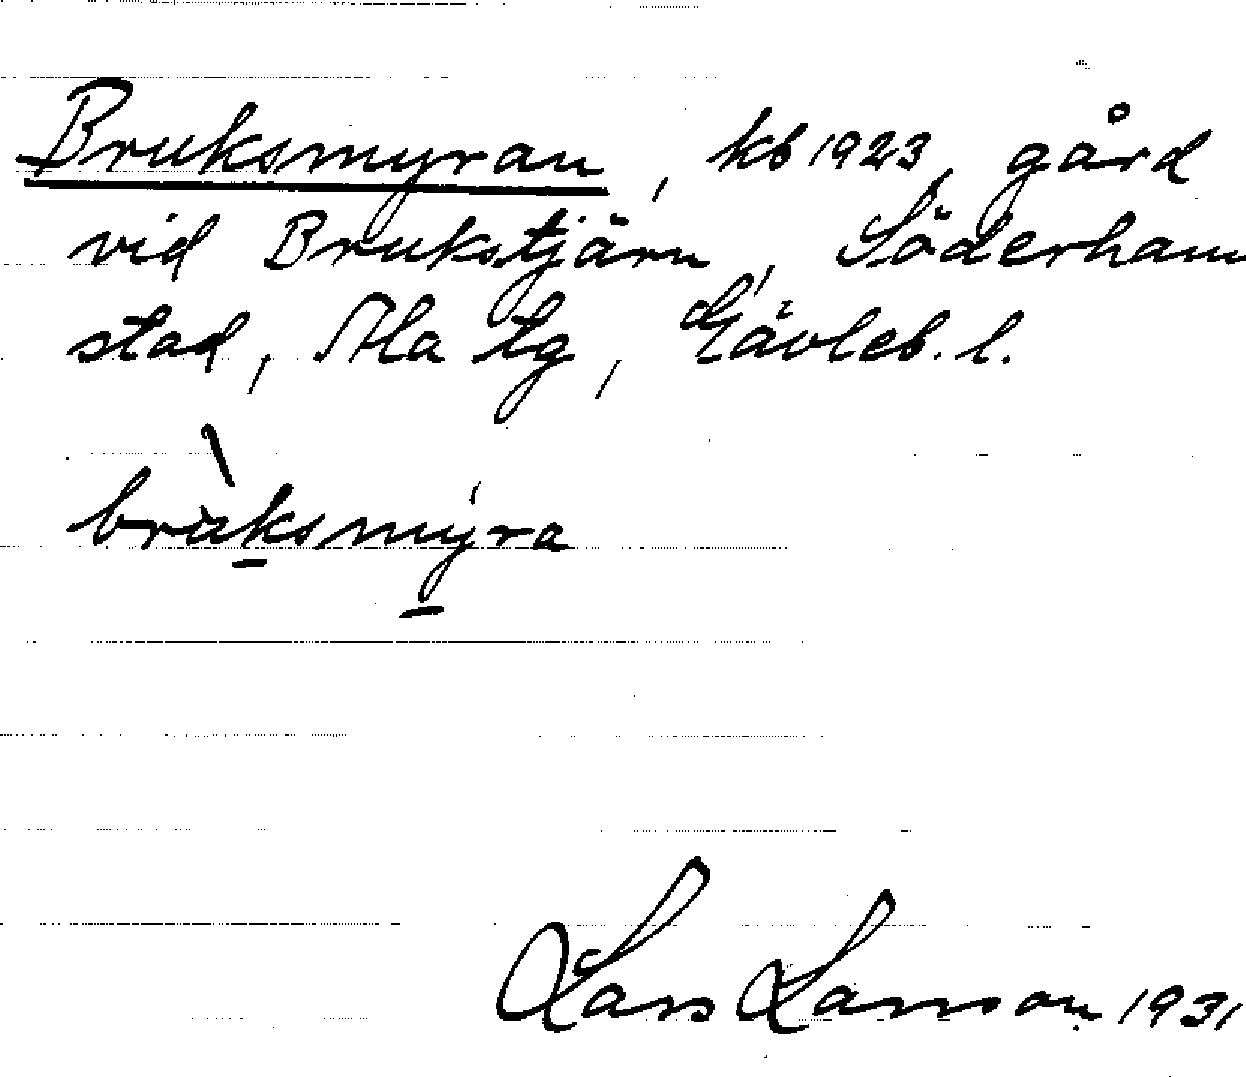 Bruksmyran, kb 1923, gård
vid Brukstjärn, Söderhamn
stad, Ala tg, Gävleb. l.
brùksmýra
Lars Larsson 1931